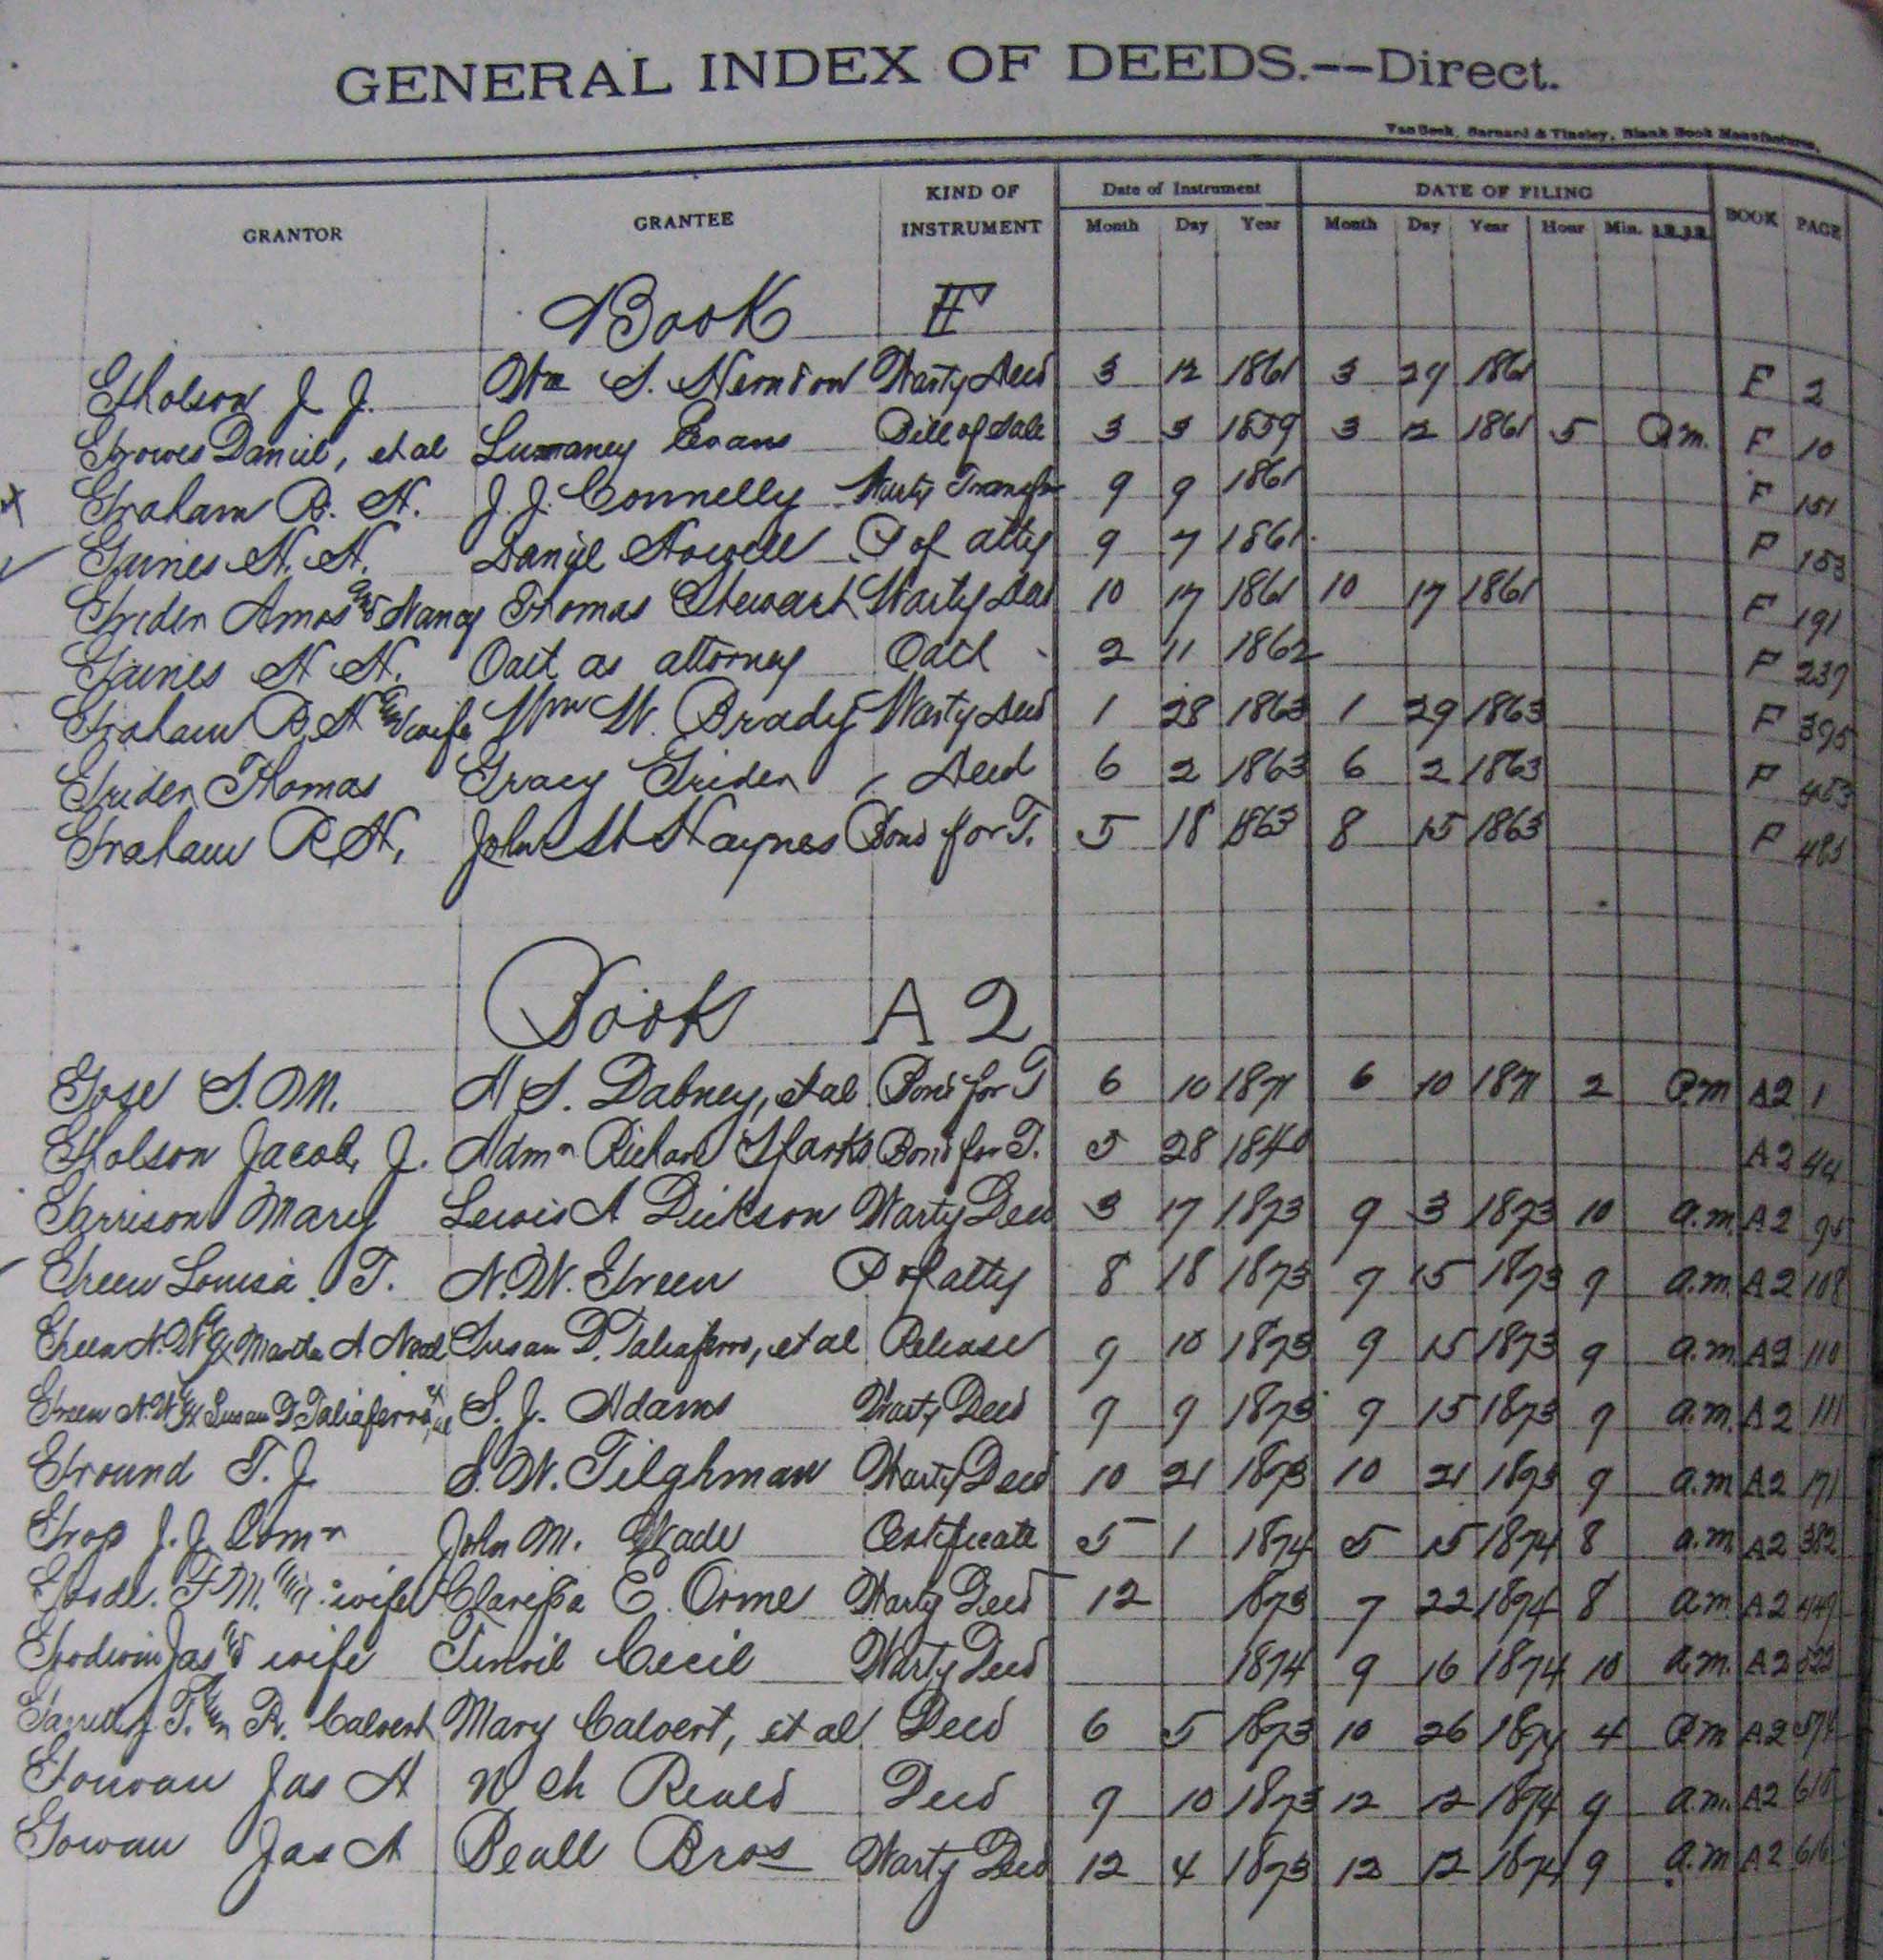 GENERAL INDEX OF DEEDS.--Direct.
VanBeek, Barnard & Tinsley, Blank Book Manufacturers,
GRANTOR GRANTEE KIND OF INSTRUMENT Date of Instrument Month Day Year DATE OF FILING Month Day Year Hour Min. BOOK PAGE
Book F
Gholson J. J. Wm S. Herndon Warty Deed 3 12 1861 3 29 1861 F 2
Growes Daniel, et al Evans Bill of Sale 3 3 1859 3 12 1861 5 P.m. F 10
Graham R. H. J. J. Connelly Warty Transfer 9 9 1861 F 151
Gaines H. H. Daniel Howell P of atty 9 7 1861 F 153
Grider Amos and Nancy Thomas Stewart Warty Deed 10 17 1861 10 17 1861 F 191
Gaines H H. Oath as attorney Oath 2 11 1862 F 237
Graham R. H and wife Wm W. Brady Warty Deed 1 28 1863 1 29 1863 F 395
Grider Thomas Gracy Grider Deed 6 2 1863 6 2 1863 F 453
Graham R. H. John H Haynes Bond for T. 5 18 1863 8 15 1863 F
Book A2
Gose S. M. H S. Dabney, et al Bond for T 6 10 1871 6 10 1871 2 P.m A2 1
Gholson Jacob, J. Admr Richard Sparks Bond for T. 5 28 1840 A2 44
Garrison Mary Lewis A Dickson Warty Deed 3 17 1873 9 3 1873 10 a.m. A2 95
Green Louisa T. N. W. Green P of atty 8 18 1873 9 15 1873 9 a.m. A2 108
Green N. W. Martha A Neal Susan D. Taliaferro, et al Release 9 10 1873 9 15 1873 9 a.m. A2 110
Green N. W. Susan D Taliaferro, et al S. J. Adams Warty Deed 9 9 1873 9 15 1873 9 a.m. A2 111
Ground T. J. S. W. Tilghman Warty Deed 10 21 1873 10 21 1873 9 a.m A2 171
J. J. Comr John M. Wade Certificate 5 1 1874 5 15 1874 8 a.m A2 382
Goode. F M. and wife Clarissa E. Orme Warty Deed 12 1873 7 22 1874 8 a.m A2 449
Goodwin Jas and wife Cecil Warty Deed 1874 9 16 1874 10 a.m. A2 522
T. R. Calvert Mary Calvert, et al Deed 6 5 1873 10 26 1874 4 P.m A2 574
Gowan Jas A Deed 9 10 1873 12 12 1874 9 a.m. A2 615
Gowan Jas A Beall Bros Warty Deed 12 4 1873 12 12 1874 9 a.m A2 616